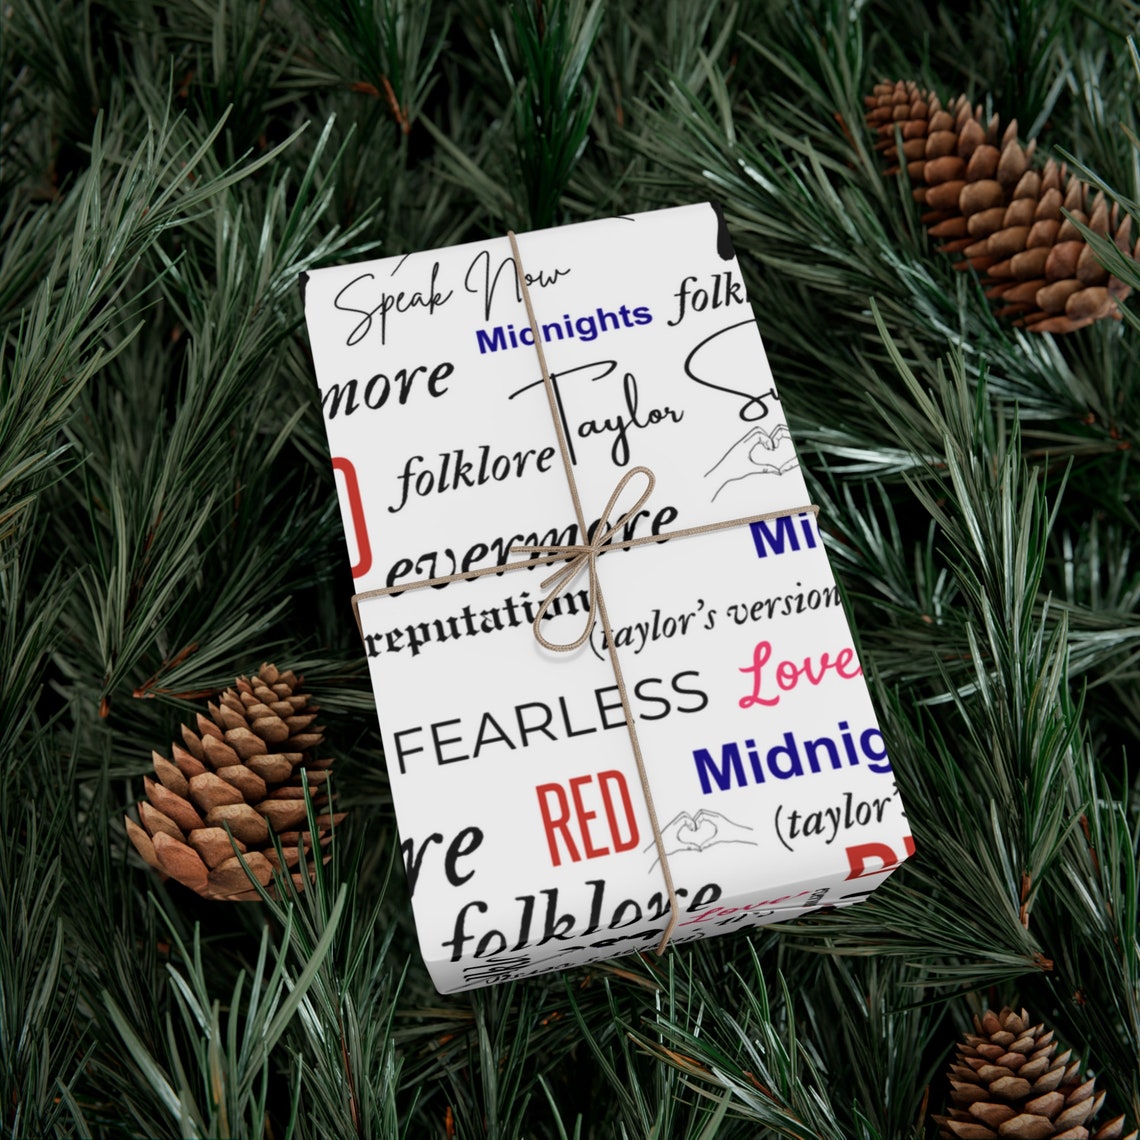 Speak Now
Midnights folk
more
Taylor Sw
folklore
evermore
Mi
reputation
(taylor's version
FEARLESS Love
Midnig
RED
(taylor'
re
folklore
Lover